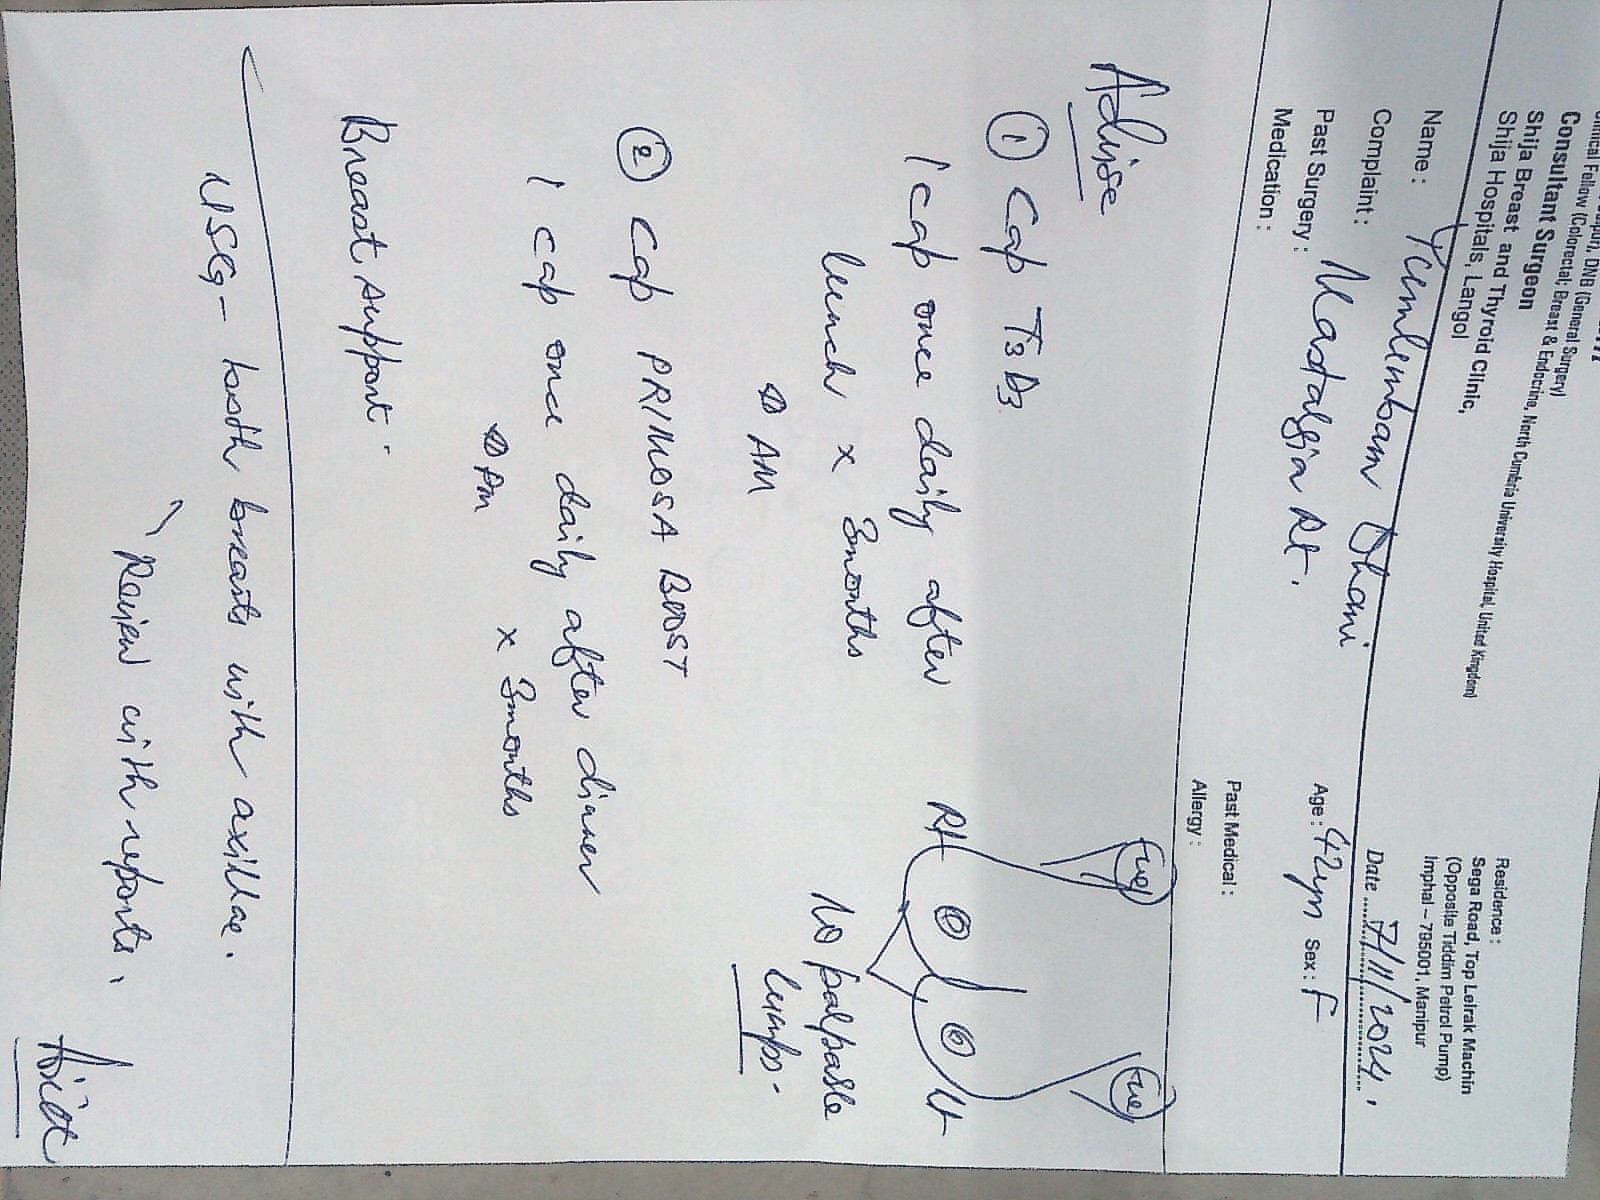 Clinical Fellow (Colorectal; Breast & Endocrine, North Cumbria University Hospital, United Kingdom)
DNB (General Surgery)
Consultant Surgeon
Shija Breast and Thyroid Clinic,
Shija Hospitals, Langol
Residence :
Sega Road, Top Leirak Machin
(Opposite Tiddim Petrol Pump)
Imphal – 795001, Manipur
Name : Yumlembam Dhani
Date 7/11/2024.
Complaint : Mastalgia Rt.
Age : 42yrs Sex : F
Past Surgery :
Past Medical :
Medication :
Allergy :
Advise
① Cap T3 D3
1 cap one daily after
lunch x 3months
AM
Rt Lt
No palpable
lumps.
② Cap PRIMOSA BOOST
1 cap once daily after dinner
x 3months
PM
Breast support.
USG - both breasts with axillae.
Review with reports.